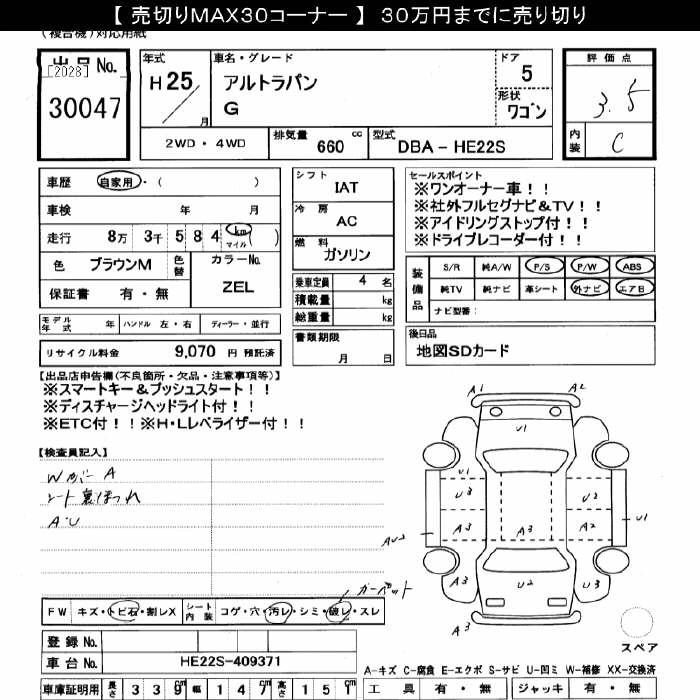 【 売切りMAX30コーナー 】 30万円までに売り切り
(複合機)対応用紙
出品No.
[2028]
30047
年式
H 25
月
車名・グレード
アルトラパン
G
ドア
5
形状
ワゴン
評価点
3.5
内装
C
2WD・4WD
排気量
660
cc
型式
DBA - HE22S
車歴
自家用・( )
車検 年 月
走行 8万 3千 5 8 4 km マイル ( )
色 ブラウンM
色替
カラーNo.
ZEL
保証書 有・無
モデル年式 年
ハンドル 左・右
ディーラー・並行
リサイクル料金 9,070 円 預託済
シフト
IAT
冷房
AC
燃料
ガソリン
乗車定員 4 名
積載量 kg
総重量 kg
書類期限
月 日
セールスポイント
※ワンオーナー車!!
※社外フルセグナビ&TV!!
※アイドリングストップ付!!
※ドライブレコーダー付!!
装備品
S/R 純A/W P/S P/W ABS
純TV 純ナビ 革シート 外ナビ エアB
ナビ型番:
後日品
地図SDカード
【出品店申告欄(不良箇所・欠品・注意事項等)】
※スマートキー&プッシュスタート!!
※ディスチャージヘッドライト付!!
※ETC付!!※H・Lレベライザー付!!
【検査員記入】
Wガラス A
シート裏ほつれ
A・U
カーペット
A1 A2
U1
U1
U3 U2
A3 A3 A2
AU2 U1
A3 U2 U3
A3
スペア
FW キズ・トビ石・割レX
シート内装 コゲ・穴・汚レ・シミ・破レ・スレ
登録No.
車台No. HE22S-409371
車庫証明用 長さ 3 3 9 cm 幅 1 4 7 cm 高さ 1 5 1 cm
A-キズ C-腐食 E-エクボ S-サビ U-凹ミ W-補修 XX-交換済
工具 有・無 ジャッキ 有・無